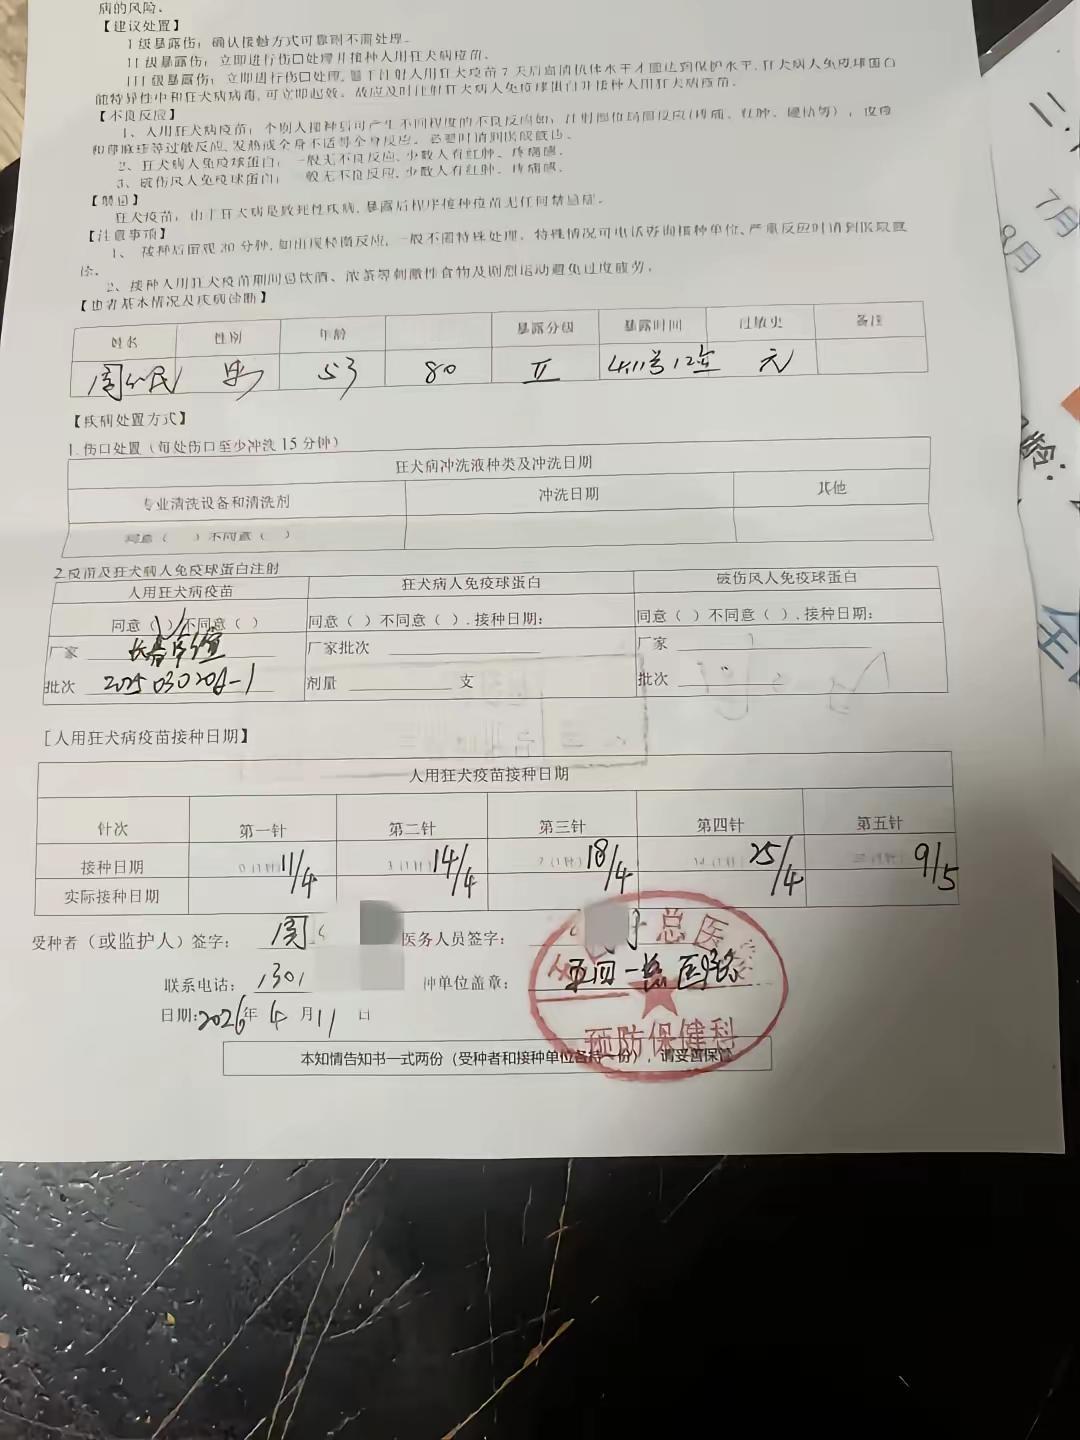 病的风险。
【建议处置】
I级暴露伤：确认接触方式可靠则不需处理。
II级暴露伤：立即进行伤口处理并接种人用狂犬病疫苗。
III级暴露伤：立即进行伤口处理，鉴于注射人用狂犬疫苗7天后血清抗体水平才能达到保护水平，狂犬病人免疫球蛋白
能特异性中和狂犬病病毒，可立即起效。故应及时注射狂犬病人免疫球蛋白并接种人用狂犬病疫苗。
【不良反应】
1、人用狂犬病疫苗：个别人接种后可产生不同程度的不良反应如：注射部位局部反应(疼痛、红肿、硬结等)，皮疹
和荨麻疹等过敏反应，发热或全身不适等全身反应。必要时请到医院就诊。
2、狂犬病人免疫球蛋白：一般无不良反应，少数人有红肿、疼痛感。
3、破伤风人免疫球蛋白：一般无不良反应，少数人有红肿、疼痛感。
【禁忌】
狂犬疫苗：由于狂犬病是致死性疾病，暴露后程序接种疫苗无任何禁忌症。
【注意事项】
1、接种后留观30分钟，如出现轻微反应，一般不需特殊处理。特殊情况可电话咨询接种单位、严重反应时请到医院就
诊。
2、接种人用狂犬疫苗期间忌饮酒、浓茶等刺激性食物及剧烈运动避免过度疲劳。
【患者基本情况及疾病诊断】
姓名 性别 年龄 暴露分级 暴露时间 过敏史 备注
男 53 80 II 4.11号12点 无
【疾病处置方式】
1.伤口处置（每处伤口至少冲洗15分钟）
狂犬病冲洗液种类及冲洗日期
专业清洗设备和清洗剂 冲洗日期 其他
同意（ ）不同意（ ）
2.疫苗及狂犬病人免疫球蛋白注射
人用狂犬病疫苗 狂犬病人免疫球蛋白 破伤风人免疫球蛋白
同意（√）不同意（ ） 同意（ ）不同意（ ）.接种日期： 同意（ ）不同意（ ）.接种日期：
厂家 长春卓谊 厂家批次 厂家
批次 2025030201-1 剂量 支 批次
[人用狂犬病疫苗接种日期】
人用狂犬疫苗接种日期
针次 第一针 第二针 第三针 第四针 第五针
接种日期 11/4 14/4 18/4 25/4 9/5
实际接种日期
受种者（或监护人）签字： 周 医务人员签字：
联系电话： 1301 种单位盖章： 医院
日期: 2026年 4 月 11 日
本知情告知书一式两份（受种者和接种单位各持一份），请妥善保管
总医
预防保健科
7月
8月
龄：